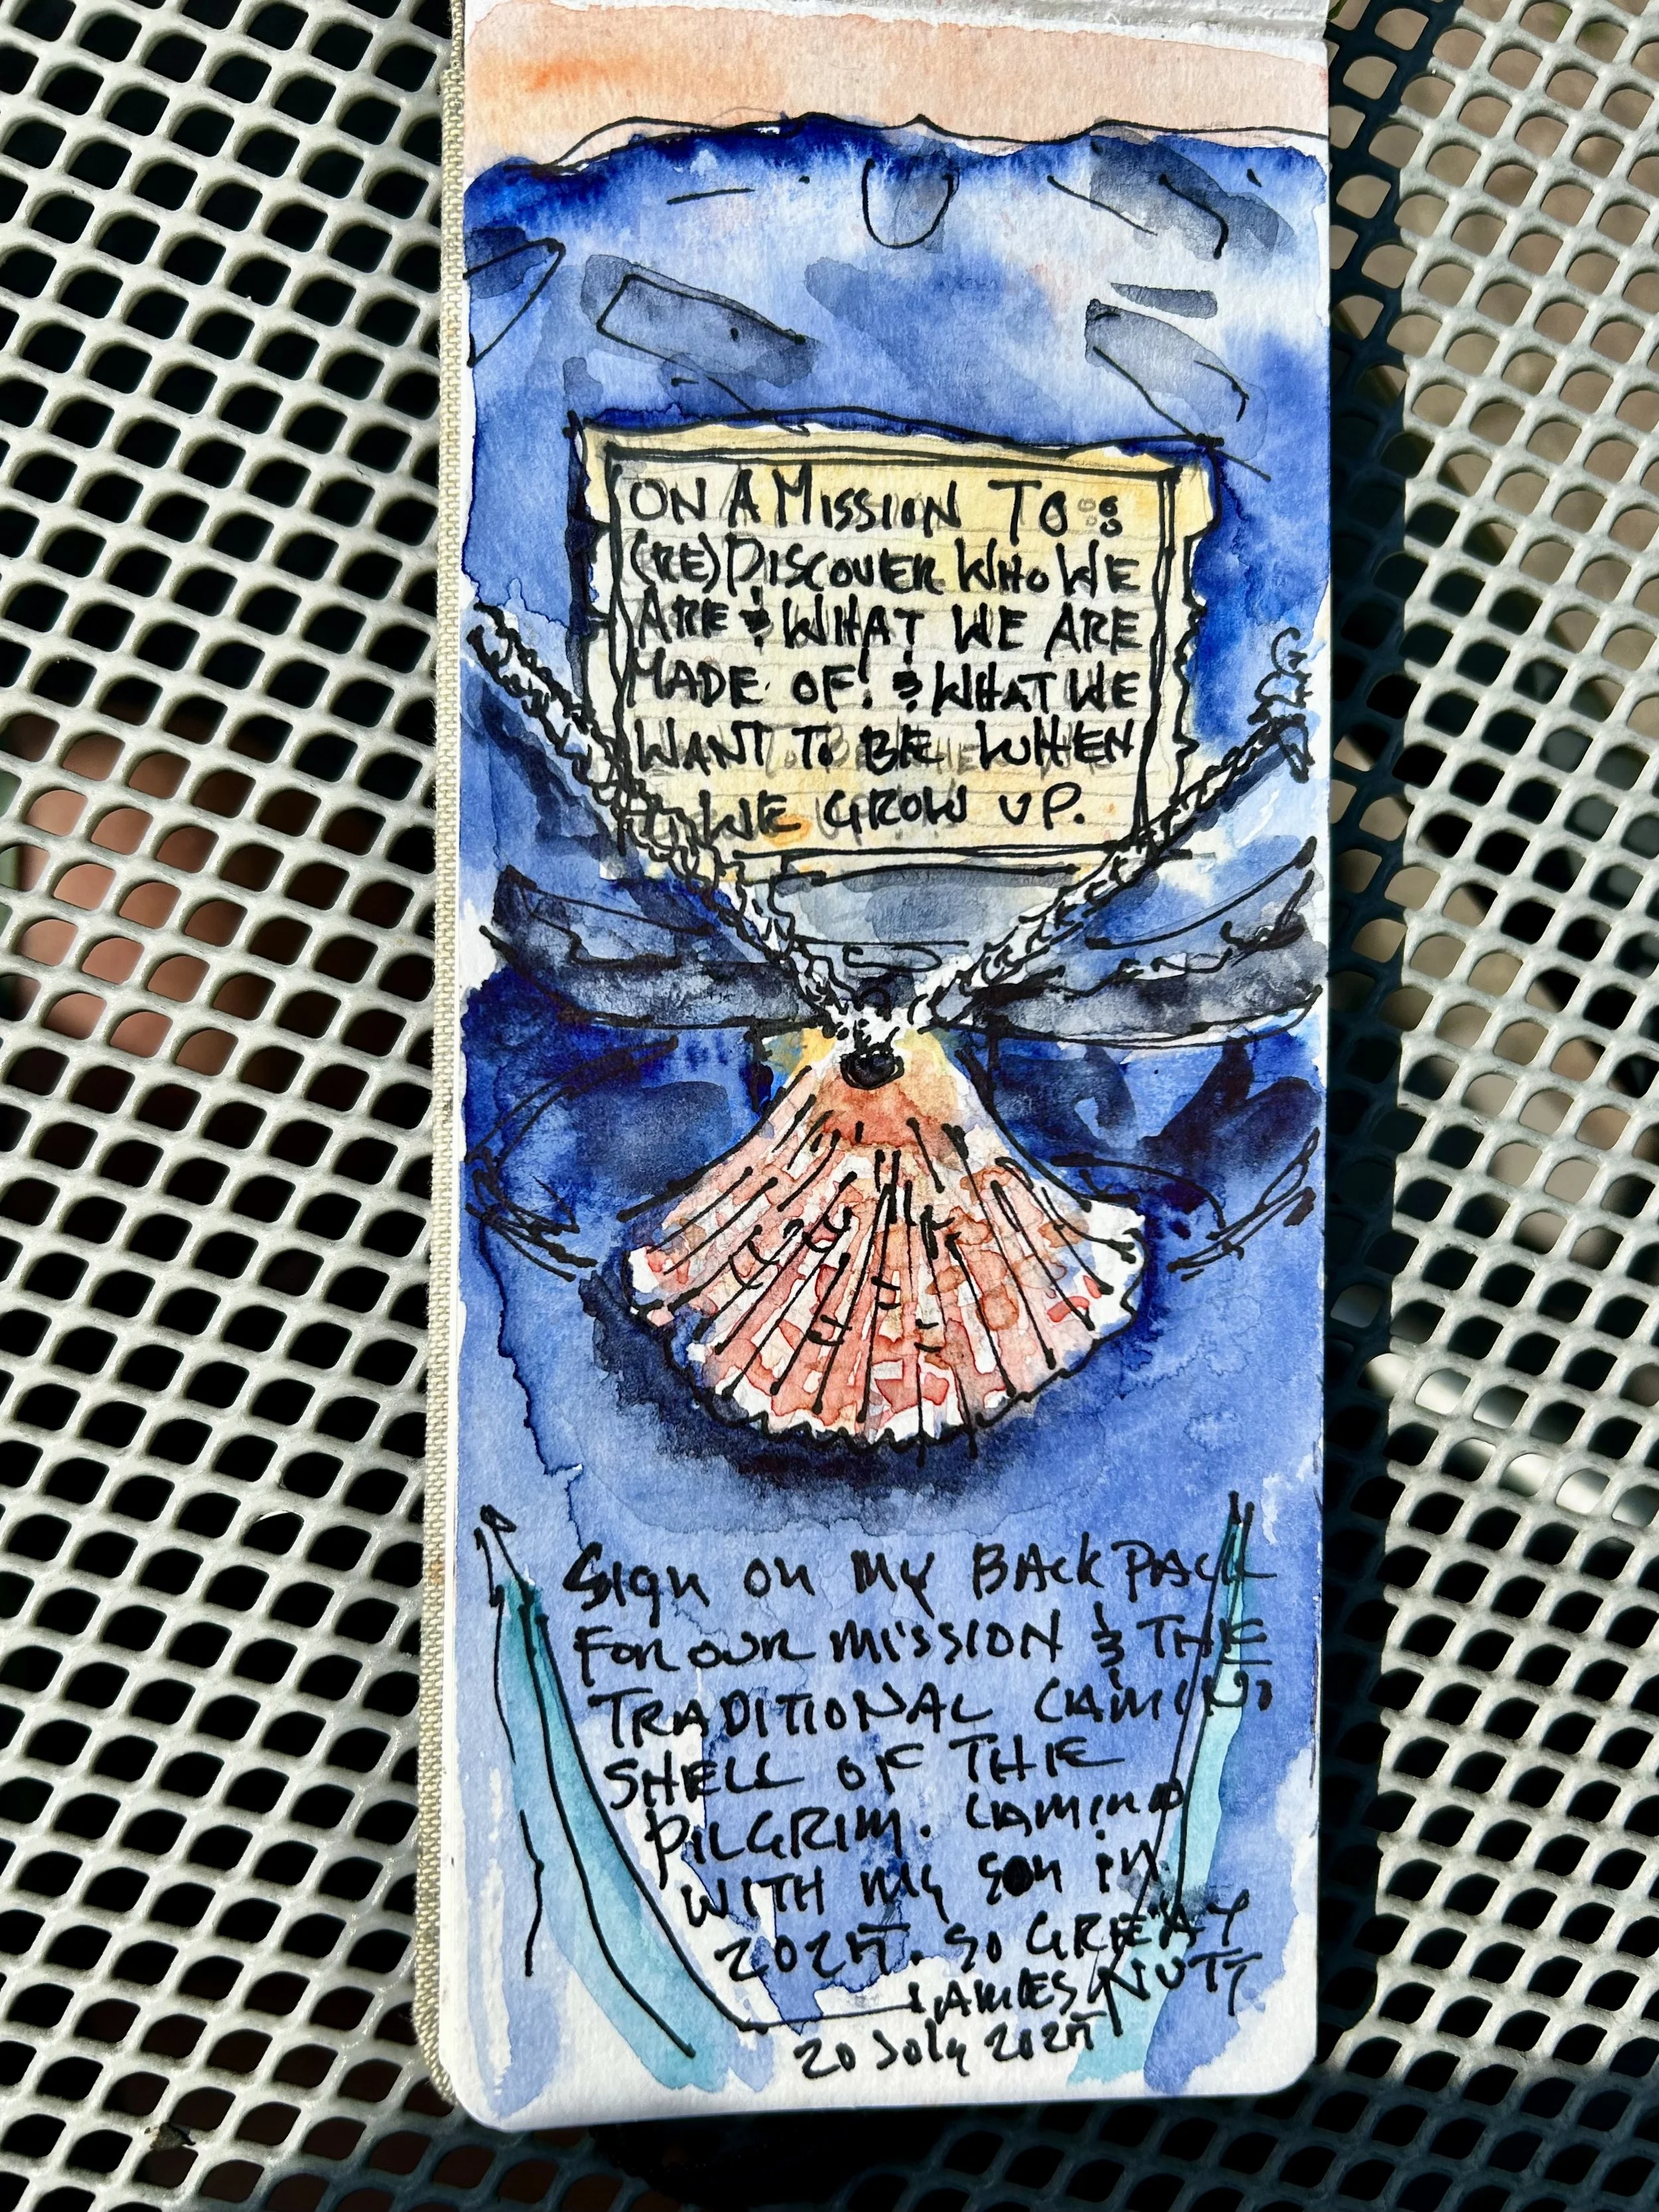 ON A MISSION TO :
(RE)DISCOVER WHO WE
ARE & WHAT WE ARE
MADE OF! & WHAT WE
WANT TO BE WHEN
WE GROW UP.
Sign on my BACKPACK
FOR OUR MISSION & THE
TRADITIONAL CAMINO
SHELL OF THE
PILGRIM. CAMINO
WITH my son in
2025. SO GREAT
JAMES NUTT
20 July 2025